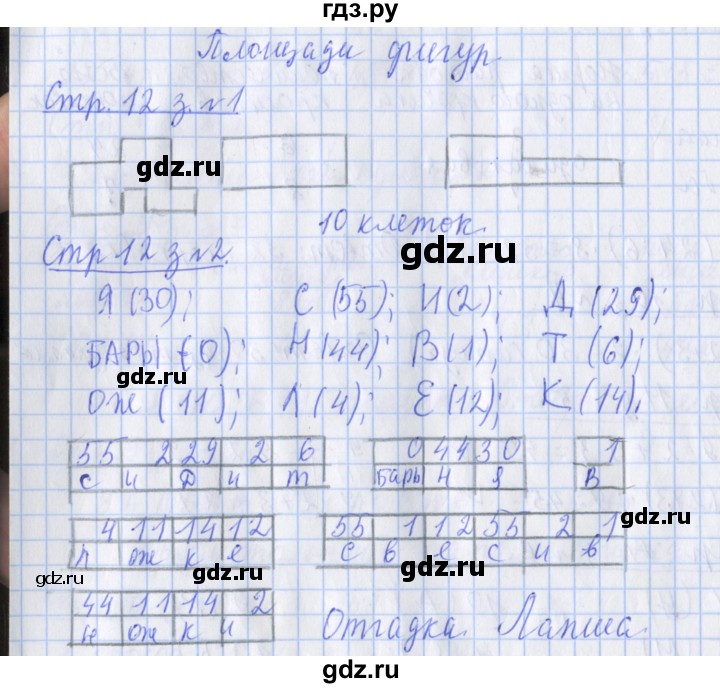 гдз.ру
Площади фигур
Стр. 12 з. №1
gdz.ru
10 клеток.
gdz.ru
Стр 12 з №2.
Я (30); С (55); И (2); Д (29);
БАРЫ (0); Н (44); В (1); Т (6);
gdz.ru
ОЖ (11); Л (4); Е (12); К (14).
55 2 29 2 6 0 44 30 1
С и Д и т Бары Н Я В
4 11 14 12 55 1 12 55 2 1
gdz.ru
Л ож к е С в е с и в
gdz.ru
gdz.ru
44 11 14 2
Н ож к и
Отгадка. Лапша.
gdz.ru
gdz.ru